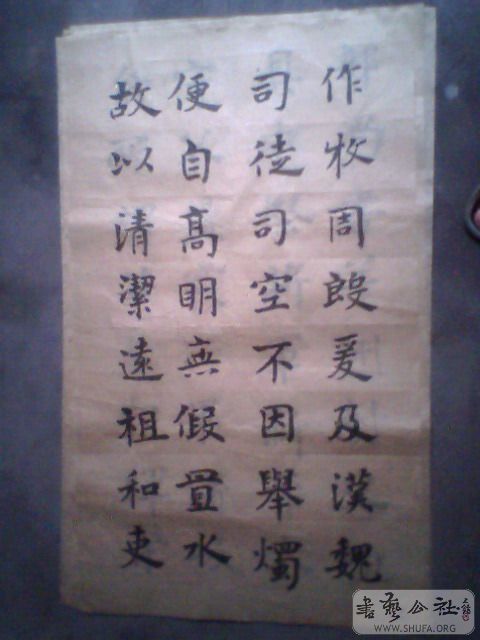 作牧周殷爰及漢魏
司徒司空不因舉燭
便自高明無假置水
故以清潔遠祖和吏
書藝公社
WWW.SHUFA.ORG